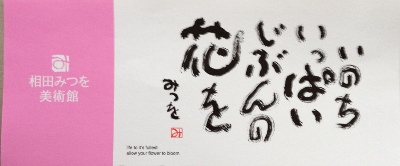 相田みつを
美術館
いのち
いっぱい
じぶんの
花を
みつを
life to it's fullest
allow your flower to bloom